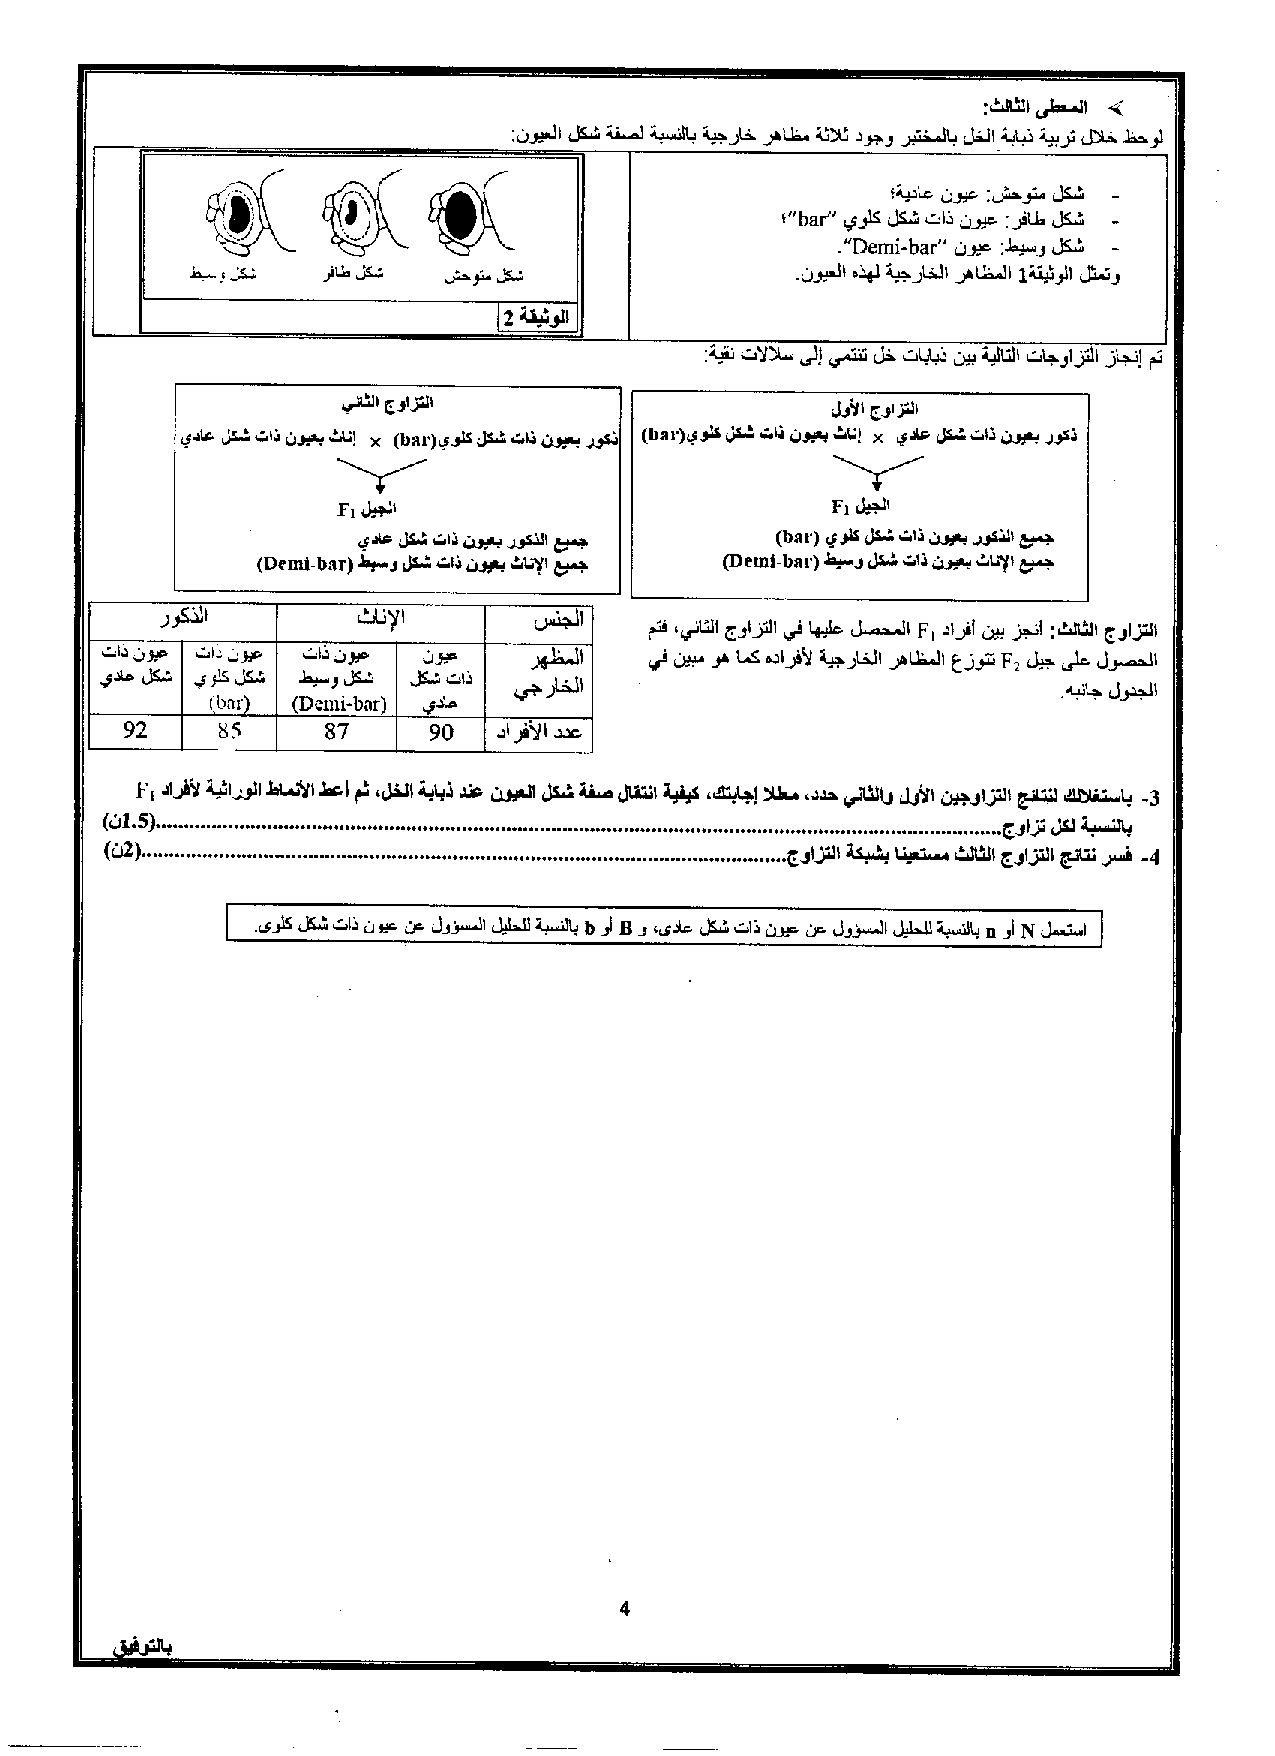 ➢ المعطى الثالث:
لوحظ خلال تربية ذبابة الخل بالمختبر وجود ثلاثة مظاهر خارجية بالنسبة لصفة شكل العيون:
- شكل متوحش: عيون عادية؛
- شكل طافر: عيون ذات شكل كلوي "bar"؛
- شكل وسيط: عيون "Demi-bar".
وتمثل الوثيقة1 المظاهر الخارجية لهذه العيون.
شكل متوحش شكل طافر شكل وسيط
الوثيقة 2
تم إنجاز التزاوجات التالية بين ذبابات خل تنتمي إلى سلالات نقية:
التزاوج الأول
ذكور بعيون ذات شكل عادي x إناث بعيون ذات شكل كلوي(bar)
الجيل F1
جميع الذكور بعيون ذات شكل كلوي (bar)
جميع الإناث بعيون ذات شكل وسيط (Demi-bar)
التزاوج الثاني
ذكور بعيون ذات شكل كلوي(bar) x إناث بعيون ذات شكل عادي
الجيل F1
جميع الذكور بعيون ذات شكل عادي
جميع الإناث بعيون ذات شكل وسيط (Demi-bar)
التزاوج الثالث: أنجز بين أفراد F1 المحصل عليها في التزاوج الثاني، فتم
الحصول على جيل F2 تتوزع المظاهر الخارجية لأفراده كما هو مبين في
الجدول جانبه.
الجنس الإناث الذكور
المظهر عيون عيون ذات عيون ذات عيون ذات
الخارجي ذات شكل شكل وسيط شكل كلوي شكل عادي
عادي (Demi-bar) (bar)
عدد الأفراد 90 87 85 92
3- باستغلالك لنتائج التزاوجين الأول والثاني حدد، معللا إجابتك، كيفية انتقال صفة شكل العيون عند ذبابة الخل، ثم أعط الأنماط الوراثية لأفراد F1
بالنسبة لكل تزاوج............................(1.5ن)
4- فسر نتائج التزاوج الثالث مستعينا بشبكة التزاوج............................(2ن)
استعمل N أو n بالنسبة للحليل المسؤول عن عيون ذات شكل عادي، و B أو b بالنسبة للحليل المسؤول عن عيون ذات شكل كلوي.
4
بالتوفيق